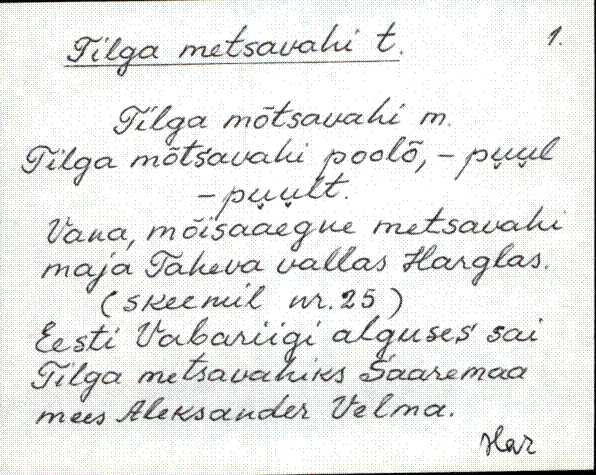 Tilga metsavahi t. 1.
Tilga mõtsavahi m.
Tilga mõtśavahi poolõ, - pu̬u̬l
- pu̬u̬lt.
Vana, mõisaaegne metsavahi
maja Taheva vallas Harglas.
(skeemil nr. 25)
Eesti Vabariigi alguses sai
Tilga metsavahiks Saaremaa
mees Aleksander Velma.
Har